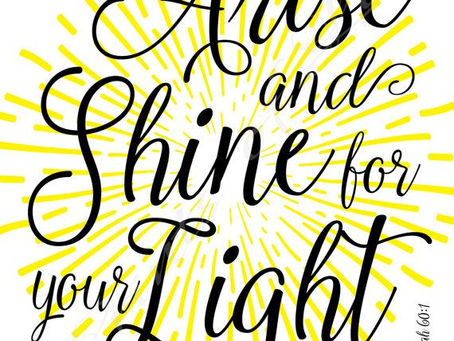 Arise
and
Shine for
your Light
ah 60:1